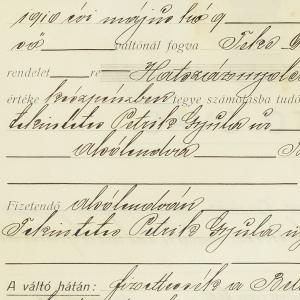 1910 évi május hó 9
váltónál fogva
rendelet re Hatszáznyolc
értéke készpénzben tegye számotásba tudó
Tekintetes Petrik Gyula úr
Alsólendva
Fizetendő Alsólendván
Tekintetes Petrik Gyula ú
A váltó hátán: fizettessék a